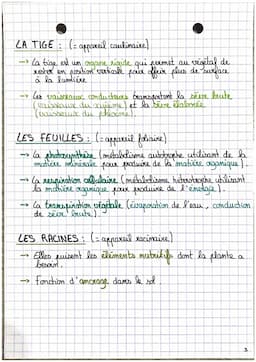 LA TIGE : (= appareil caulinaire)
→ La tige est un organe rigide qui permet au végétal de
rester en position verticale pour offrir plus de surface
à la lumière
→ Les vaisseaux conducteurs transportent la sève brute
(vaisseaux du xylème) et la sève élaborée
(vaisseaux du phloème).
LES FEUILLES : (= appareil foliaire)
→ La photosynthèse (métabolisme autotrophe utilisant de la
matière minérale pour produire de la matière organique).
→ La respiration cellulaire (métabolisme hétérotrophe utilisant
la matière organique pour produire de l'énergie).
→ La transpiration végétale (évaporation de l'eau, conduction
de sève brute).
LES RACINES : (= appareil racinaire)
→ Elles puisent les éléments nutritifs dont la plante a
besoin.
→ Fonction d'ancrage dans le sol.